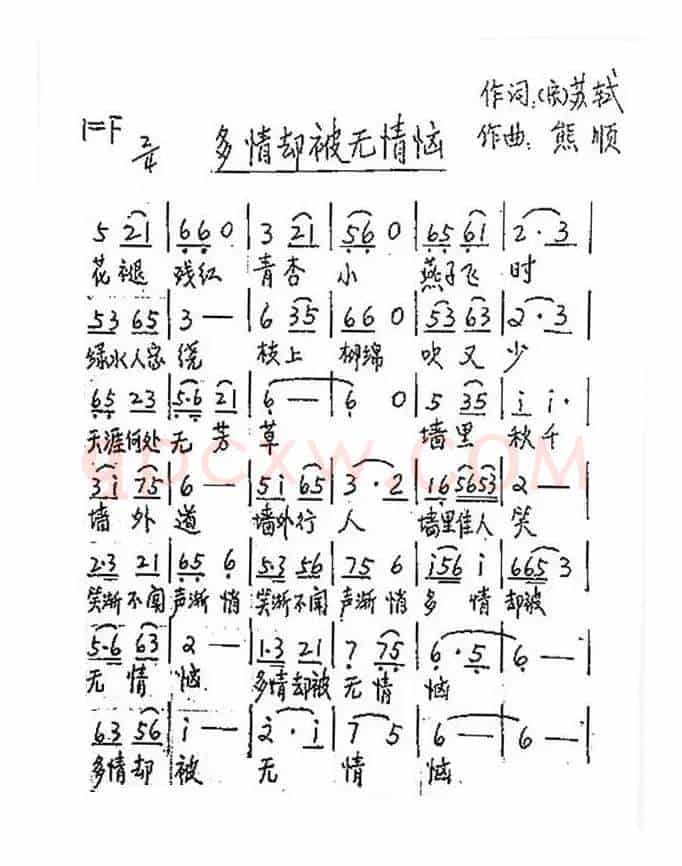 作词:(宋)苏轼
1=F 2/4 多情却被无情恼 作曲:熊顺
5 21 | 66 0 | 3 21 | 56 0 | 65 61 | 2·3 |
花褪 残红 青杏 小 燕子飞 时
53 65 | 3 — | 6 35 | 66 0 | 53 63 | 2·3 |
绿水人家 绕 枝上 柳绵 吹又 少
65 23 | 5·6 21 | 6 — | 6 0 | 5 35 | i i· |
天涯何处 无芳 草 墙里 秋千
3i 75 | 6 — | 5i 65 | 3·2 | 16 5653 | 2 — |
墙外 道 墙外行 人 墙里佳人 笑
2·3 21 | 65 6 | 5·3 56 | 75 6 | i56 i | 665 3 |
笑渐不闻 声渐悄 笑渐不闻 声渐悄 多情 却被
5·6 63 | 2 — | 1·3 21 | 7 75 | 6·5 | 6 — |
无情 恼 多情却被 无情 恼
63 56 | i — | 2·i | 7 5 | 6 — | 6 — |
多情却 被 无 情 恼
qpcxw.com